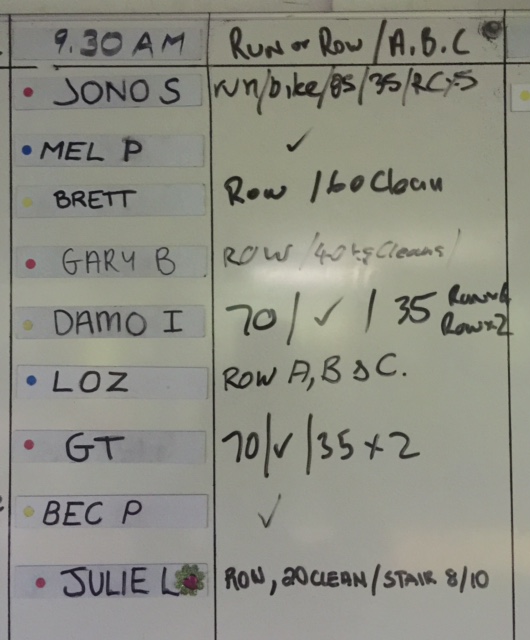 9.30 AM RUN or ROW / A.B.C
JONO S run/bike/85/35/RCx5
MEL P ✓
BRETT Row / 60 Clean
GARY B ROW / 40kg Cleans /
DAMO I 70 / ✓ / 35 Row x2
LOZ ROW A, B & C.
GT 70/✓/35 x 2
BEC P ✓
JULIE L ROW, 20 CLEAN / STAIR 8/10